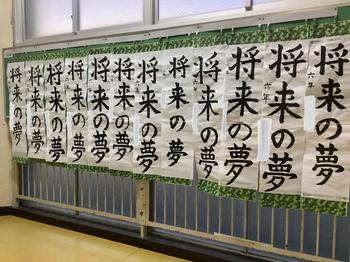 将来の夢
六年
将来の夢
六年
将来の夢
将来の夢
将来の夢
将来の夢
将来の夢
将来の夢
将来の夢
将来の夢
将来の夢
将来の夢